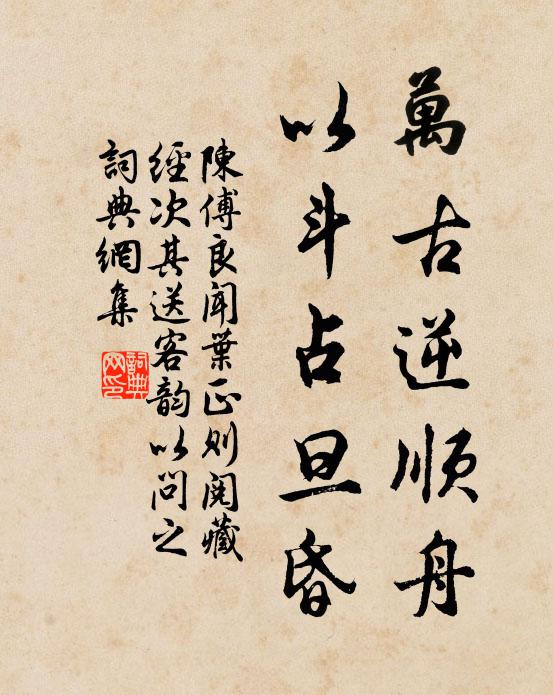 萬古逆順舟
以斗占旦昏
陳傅良聞葉正則閱藏
經次其送客韵以問之
詞典網集
詞典網印